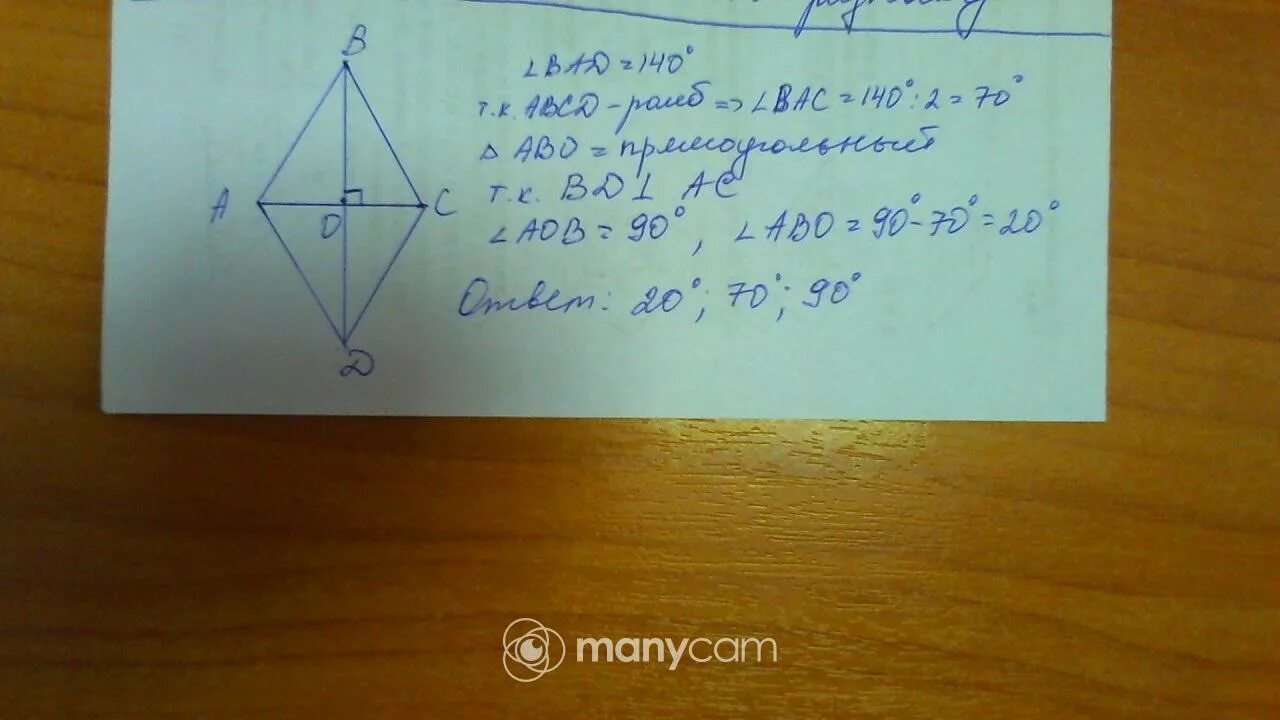 B
∠BAD = 140°
т.к. ABCD - ромб => ∠BAC = 140° : 2 = 70°
△ ABO = прямоугольный
т.к. BD ⊥ AC
A
O
C
∠AOB = 90°, ∠ABO = 90° - 70° = 20°
Ответ: 20°; 70°; 90°
D
manycam